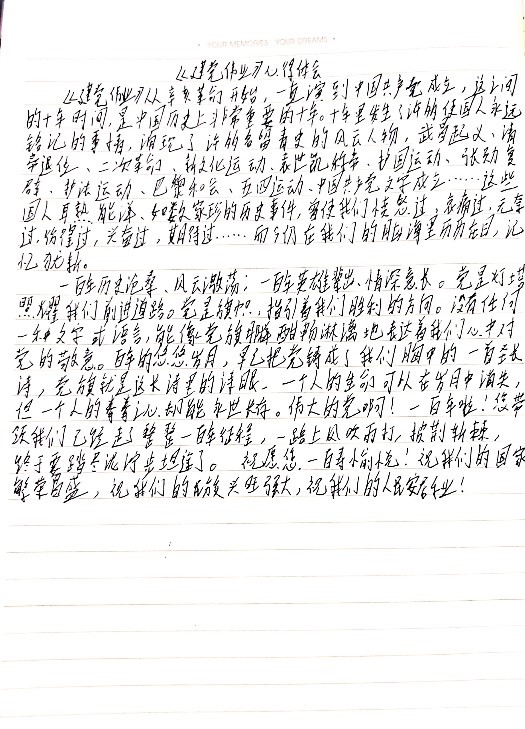 YOUR MEMORIES YOUR DREAMS
《建党伟业》心得体会
《建党伟业》从辛亥革命开始，一直演到中国共产党成立，这之间
的十年时间，是中国历史上非常重要的十年。十年里发生了许多使国人永远
铭记的事情，涌现了许多名留青史的风云人物，武昌起义、清
帝退位、二次革命、新文化运动、袁世凯称帝、护国运动、张勋复
辟、护法运动、巴黎和会、五四运动、中国共产党成立……这些
国人耳熟能详、如数家珍的历史事件，曾使我们愤怒过，哀痛过，无奈
过，彷徨过，兴奋过，期待过……而今仍在我们的脑海里历历在目，记
忆犹新。
一百年历史沧桑、风云激荡；一百年英雄辈出、情深意长。党是灯塔
照耀我们前进道路。党是旗帜，指引着我们胜利的方向。没有任何
一种文字或语言，能像党旗那样酣畅淋漓地表达着我们心中对
党的敬意。百年的悠悠岁月，早已把党铸成了我们胸中的一首长
诗，党旗就是这长诗里的诗眼。一个人的生命可以在岁月中消失，
但一个人的青春记忆却能永世长存。伟大的党啊！一百年啦！您带
领我们已经走了整整一百年征程，一路上风吹雨打，披荆斩棘，
终于要踏尽泥泞步坦途了。祝愿您一百寿愉悦！祝我们的国家
繁荣昌盛，祝我们的民族兴旺强大，祝我们的人民安居乐业！